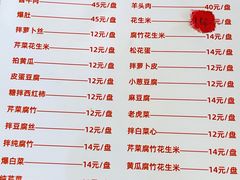 45元/盘
爆肚 40元/盘
拌萝卜丝 12元/盘
芹菜花生米 12元/盘
拍黄瓜 12元/盘
皮蛋豆腐 12元/盘
糖拌西红柿 12元/盘
芹菜腐竹 12元/盘
拌豆腐丝 12元/盘
拌纯腐竹 14元/盘
爆白菜 14元/盘
14元/盘
羊头肉 40元/盘
花生米
腐竹花生米
松花蛋 12元/盘
拌萝卜皮 12元/盘
小葱豆腐 12元/盘
麻豆腐 12元/盘
老虎菜 12元/盘
拌白菜心 12元/盘
芹菜腐竹花生米 14元/盘
黄瓜腐竹花生米 14元/盘